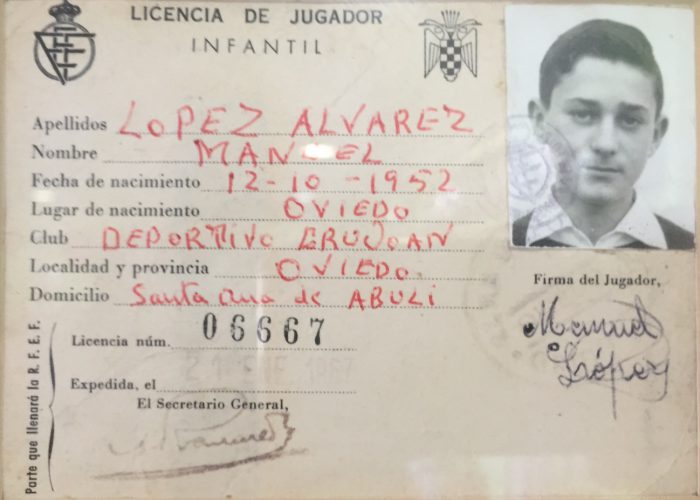 LICENCIA DE JUGADOR
INFANTIL
Apellidos LOPEZ ALVAREZ
Nombre MANUEL
Fecha de nacimiento 12-10-1952
Lugar de nacimiento OVIEDO
Club DEPORTIVO
Localidad y provincia OVIEDO.
Domicilio Santa Ana de ABULI
Licencia núm. 06667
Expedida, el
El Secretario General,
Parte que llenará la R. F. E. F.
Firma del Jugador,
Manuel
López